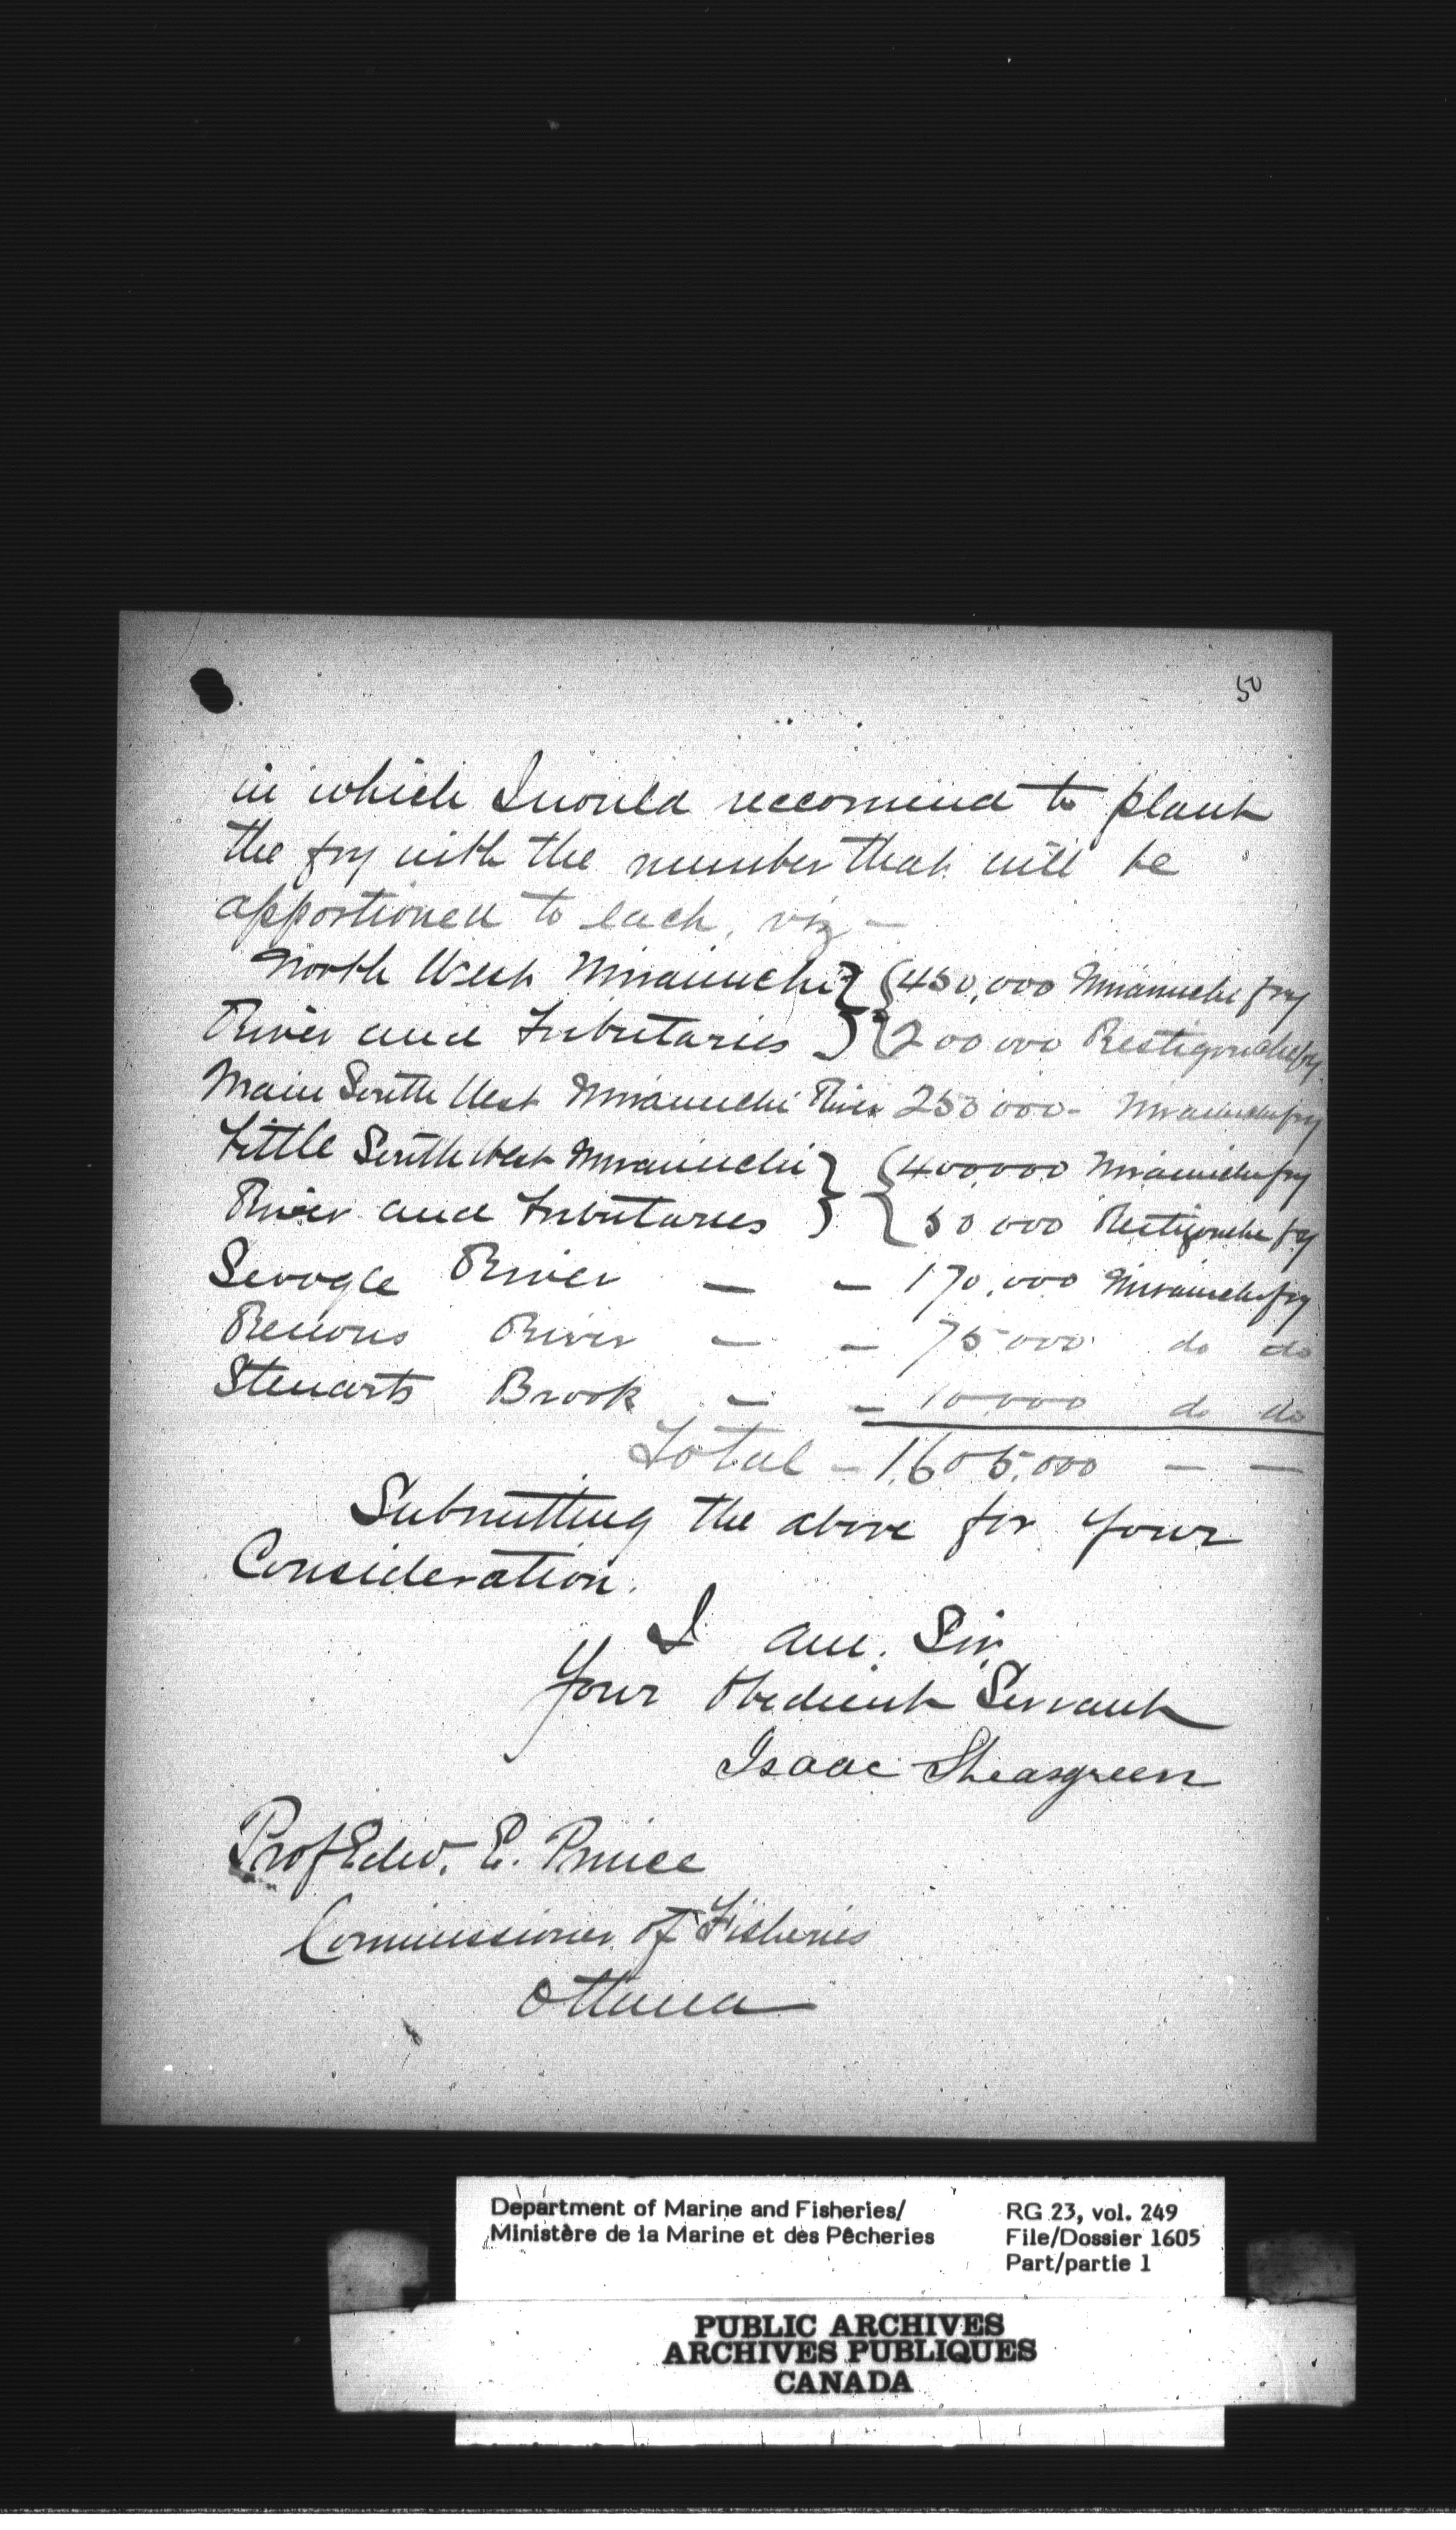 50
in which I would reccomend to plant
the fry with the number that will be
apportioned to each, viz —
North West Miramichi } { 450,000 Miramichi fry
River and Tributaries } { 200 000 Restigouche fry
Main South West Miramichi River 250 000 - Miramichi fry
Little South West Miramichi } { 400,000 Miramichi fry
River and Tributaries } { 50 000 Restigouche fry
Sevogle River — — 170,000 Miramichi fry
Renous River — — 75 000 do do
Stewarts Brook — — 10 000 do do
Total — 1,605,000 — —
Submitting the above for your
Consideration.
I am. Sir.
Your Obedient Servant
Isaac Sheasgreen
Prof Edw. E. Prince
Commissioner of Fisheries
Ottawa
Department of Marine and Fisheries/ RG 23, vol. 249
Ministère de la Marine et des Pêcheries File/Dossier 1605
Part/partie 1
PUBLIC ARCHIVES
ARCHIVES PUBLIQUES
CANADA